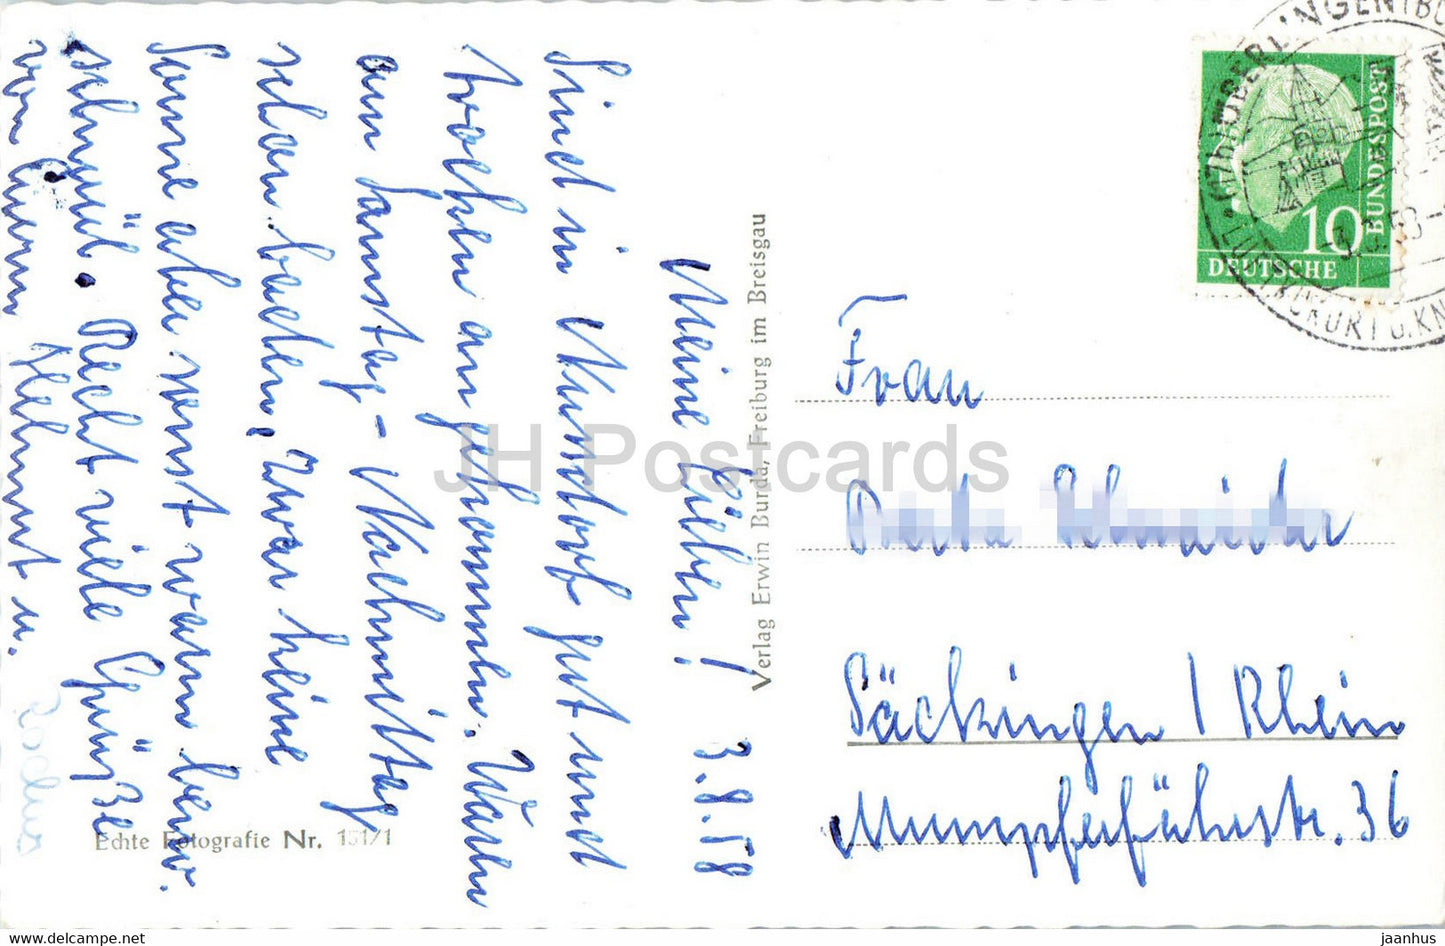 Meine Lieben! 3.8.58
Sind in Nussdorf gut und
Wochen angekommen. Waren
am Samstag-Nachmittag
schon baden, zwar keine
Sonne aber sonst warm bew.
schwül. Recht viele Grüße
von Eurem Helmut u.
Verlag Erwin Burda, Freiburg im Breisgau
Echte Fotografie Nr. 151/1
DEUTSCHE
BUNDESPOST
10
Frau
Säckingen / Rhein
Mumpferfährstr. 36
JH Postcards
www.delcampe.net
jaanhus